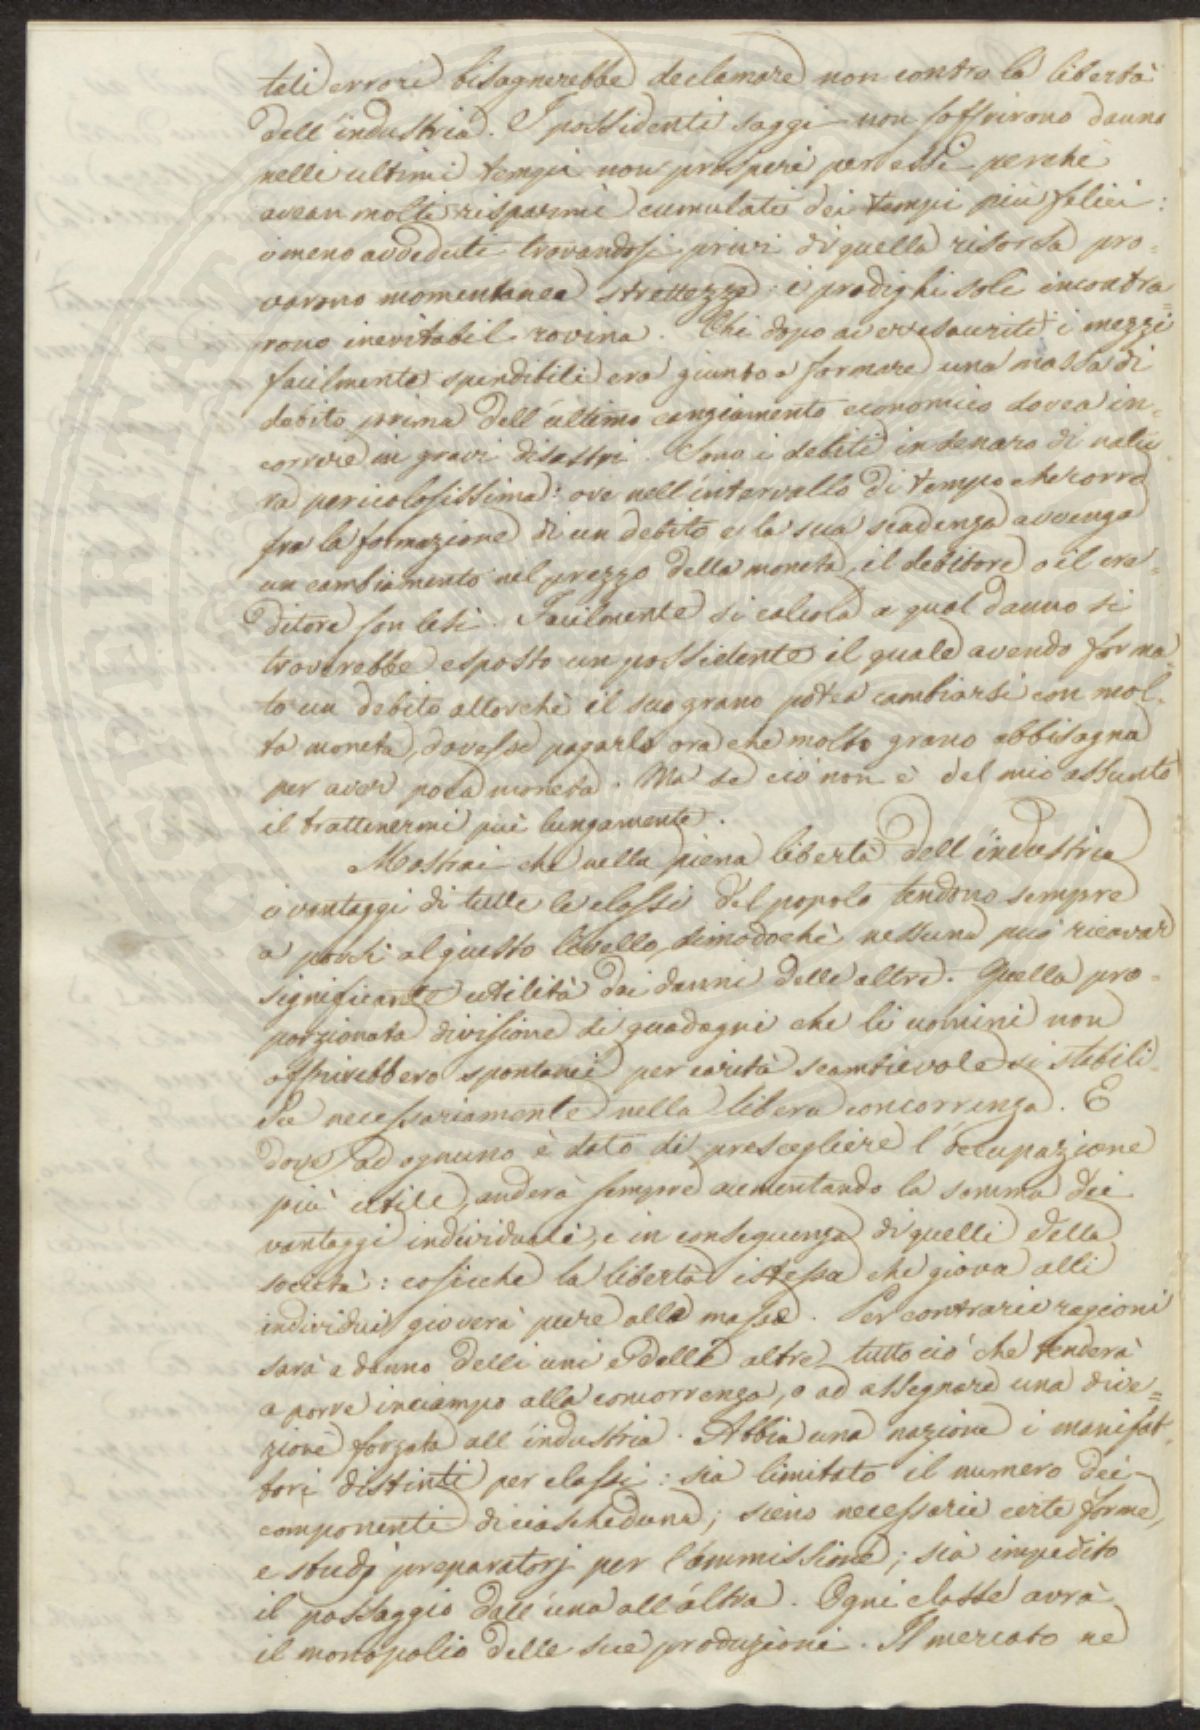 tali errori bisognerebbe declamare non contro la libertà
dell'industria. I possidenti saggi non soffrirono danno
nelli ultimi tempi non prosperi per essi perchè
avean molti risparmi cumulati dei tempi più felici:
i meno avveduti trovandosi privi di quella risorsa pro=
varono momentanea strettezza: i prodighi soli incontra=
rono inevitabil rovina. Chi dopo aver esauriti i mezzi
facilmente spendibili era giunto a formare una massa di
debito prima dell'ultimo cangiamento economico dovea in=
correre in gravi disastri. Sono i debiti in denaro di natu
ra pericolosissima: ove nell'intervallo di tempo che corre
fra la formazione di un debito e la sua scadenza avvenga
un cambiamento nel prezzo della moneta, il debitore o il cre=
ditore son lesi. Facilmente si calcola a qual danno si
troverebbe esposto un possidente il quale avendo forma=
to un debito allorchè il suo grano potea cambiarsi con mol=
ta moneta, dovesse pagarlo ora che molto grano abbisogna
per aver poca moneta. Ma se ciò non è del mio assunto
il trattenermi più lungamente.
Mostrai che nella piena libertà dell'industria
i vantaggi di tutte le classi del popolo tendono sempre
a porsi al giusto livello, dimodochè nessuna può ricavar
significante utilità dai danni delle altre. Quella pro=
porzionata divisione di guadagni che li uomini non
offrirebbero spontanei per carità scambievole si stabili=
sce necessariamente nella libera concorrenza. E
dove ad ognuno è dato di prescegliere l'occupazione
più utile, anderà sempre aumentando la somma dei
vantaggi individuali, e in conseguenza di quelli della
società: cosicchè la libertà istessa che giova alli
individui gioverà pure alla massa. Per contrarie ragioni
sarà a danno delli uni e delle altre tutto ciò che tenderà
a porre inciampo alla concorrenza, o ad assegnare una dire=
zione forzata all'industria. Abbia una nazione i manifat=
tori distinti per classi: sia limitato il numero dei
componenti di ciascheduna; sieno necessarie certe forme,
e studj preparatorj per l'ammissione; sia impedito
il passaggio dall'una all'altra. Ogni classe avrà
il monopolio delle sue produzioni. Il mercato ne